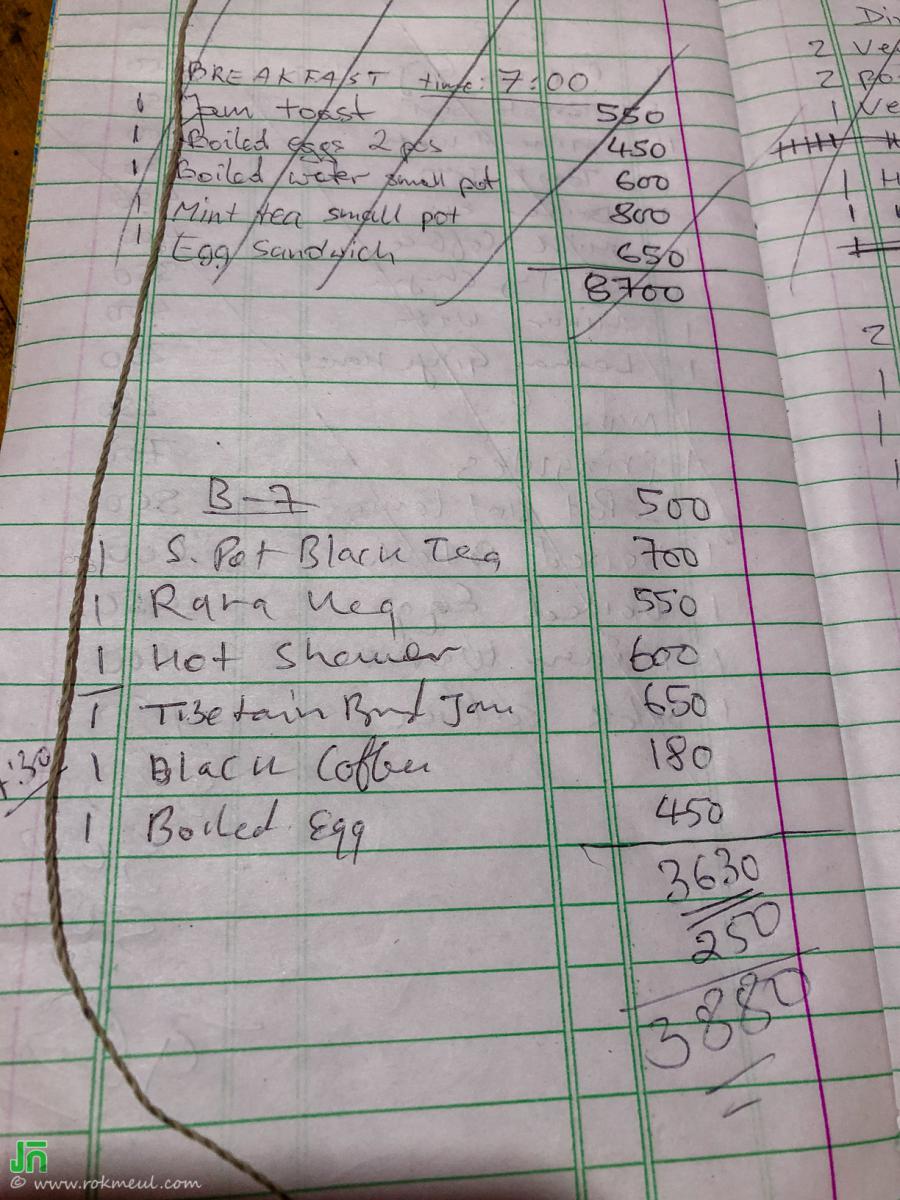 BREAKFAST time: 7:00
1 Jam toast 550
1 Boiled eggs 2 pcs 450
1 Boiled water small pot 600
1 Mint tea small pot 800
1 Egg Sandwich 650
8700
B-7 500
1 S. Pot Black Tea 700
1 Rara Veg 550
1 Hot Shower 600
1 TiBetain Brd Jam 650
:30 1 Black Coffee 180
1 Boiled Egg 450
3630
250
3880
2 Ve
2 Po
1 Ve
1 H
1
2
1
1
Jn
© www.rokmeul.com